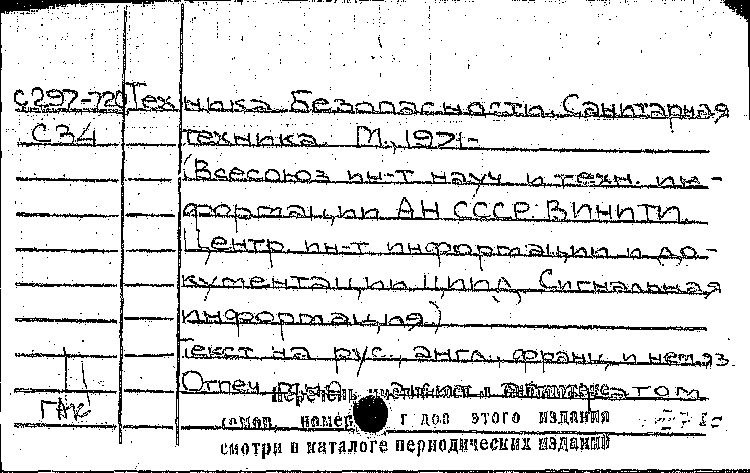 С297-720 Техника безопасности. Санитарная
С34 техника. М., 1971-
(Всесоюз ин-т науч и техн. ин-
формации АН СССР. ВИНИТИ.
Центр. ин-т информации и до-
кументации ЦИПД. Сигнальная
информация.)
Текст на рус., англ., франц. и нем.яз.
Отпеч
Перечень имеющихся в библиотеке
томов, номер г дов этого издания
ГАК
смотри в каталоге периодических изданий